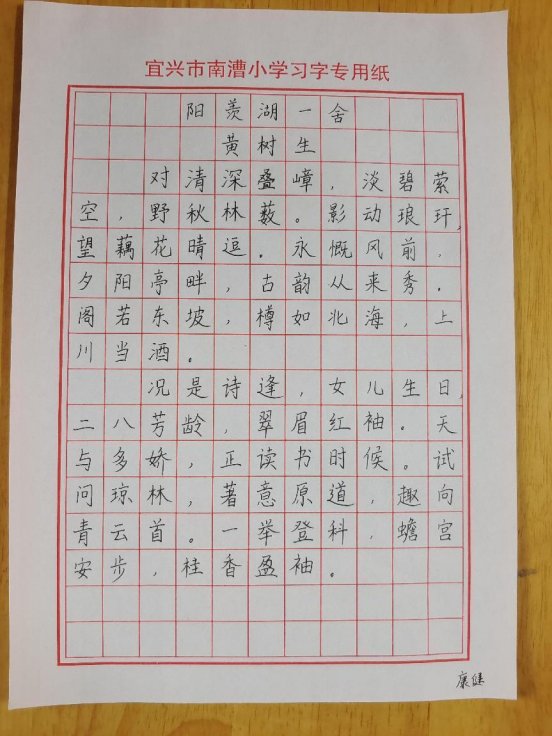 宜兴市南漕小学习字专用纸
阳羡湖一舍
黄树生
对清深叠嶂，淡碧萦
空，野秋林薮。影动琅玕，
望藕花晴逗。永慨风前，
夕阳亭畔，古韵从来秀。
阁若东坡，樽如北海，上
川当酒。
况是诗逢，女儿生日，
二八芳龄，翠眉红袖。天
与多娇，正读书时候。试
问琼林，著意原道，趣向
青云首。一举登科，蟾宫
安步，桂香盈袖。
康健